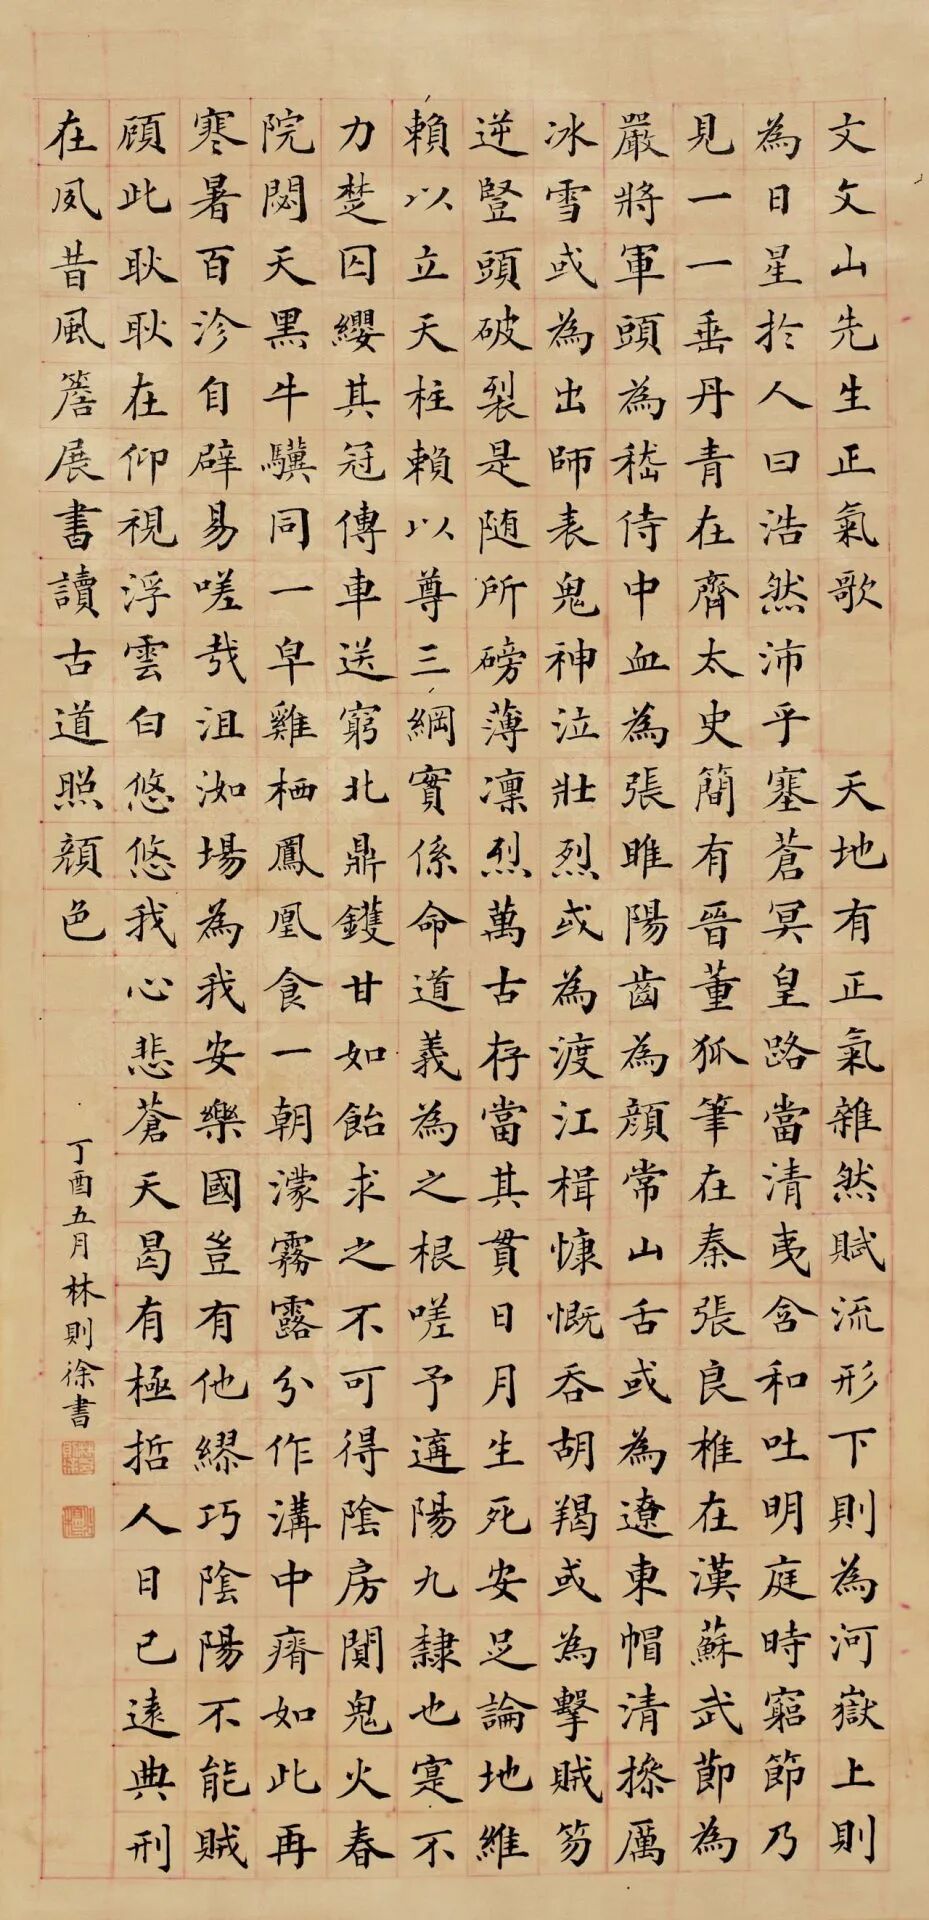 文文山先生正氣歌　天地有正氣雜然賦流形下則為河嶽上則
為日星於人曰浩然沛乎塞蒼冥皇路當清夷含和吐明庭時窮節乃
見一一垂丹青在齊太史簡有晉董狐筆在秦張良椎在漢蘇武節為
嚴將軍頭為嵇侍中血為張睢陽齒為顏常山舌或為遼東帽清操厲
冰雪或為出師表鬼神泣壯烈或為渡江楫慷慨吞胡羯或為擊賊笏
逆豎頭破裂是随所磅薄凜烈萬古存當其貫日月生死安足論地維
賴以立天柱賴以尊三綱實係命道義為之根嗟予遘陽九隸也寔不
力楚囚纓其冠傳車送窮北鼎鑊甘如飴求之不可得陰房闃鬼火春
院閟天黑牛驥同一皁雞栖鳳凰食一朝濛霧露分作溝中瘠如此再
寒暑百沴自辟易嗟哉沮洳場為我安樂國豈有他繆巧陰陽不能賊
顧此耿耿在仰視浮雲白悠悠我心悲蒼天曷有極哲人日已遠典刑
在夙昔風簷展書讀古道照顏色
丁酉五月林則徐書